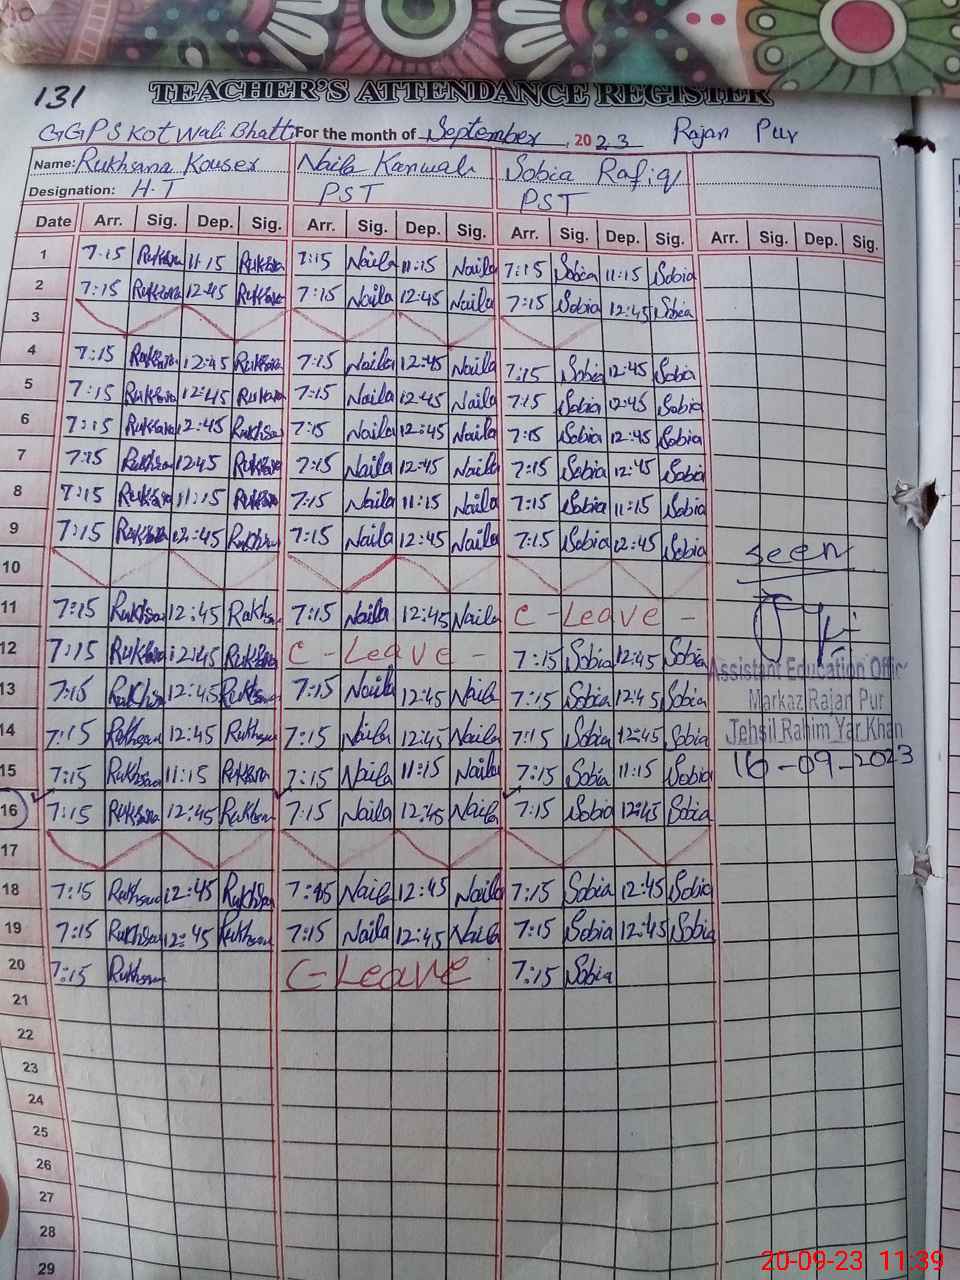 131
TEACHER'S ATTENDANCE REGISTER
GGPS Kot Wali Bhatti For the month of September, 2023 Rajan Pur
Name: Rukhsana Kouser Naila Kanwal Sobia Rafiq
Designation: H.T PST PST
Date Arr. Sig. Dep. Sig. Arr. Sig. Dep. Sig. Arr. Sig. Dep. Sig. Arr. Sig. Dep. Sig.
1 7:15 Rukhsana 11:15 Rukhsana 7:15 Naila 11:15 Naila 7:15 Sobia 11:15 Sobia
2 7:15 Rukhsana 12:45 Rukhsana 7:15 Naila 12:45 Naila 7:15 Sobia 12:45 Sobia
3
4 7:15 Rukhsana 12:45 Rukhsana 7:15 Naila 12:45 Naila 7:15 Sobia 12:45 Sobia
5 7:15 Rukhsana 12:45 Rukhsana 7:15 Naila 12:45 Naila 7:15 Sobia 12:45 Sobia
6 7:15 Rukhsana 12:45 Rukhsana 7:15 Naila 12:45 Naila 7:15 Sobia 12:45 Sobia
7 7:15 Rukhsana 12:45 Rukhsana 7:15 Naila 12:45 Naila 7:15 Sobia 12:45 Sobia
8 7:15 Rukhsana 11:15 Rukhsana 7:15 Naila 11:15 Naila 7:15 Sobia 11:15 Sobia
9 7:15 Rukhsana 12:45 Rukhsana 7:15 Naila 12:45 Naila 7:15 Sobia 12:45 Sobia
seen
10
11 7:15 Rukhsana 12:45 Rukhsana 7:15 Naila 12:45 Naila C-Leave -
12 7:15 Rukhsana 12:45 Rukhsana C-Leave - 7:15 Sobia 12:45 Sobia
Assistant Education Offic
13 7:15 Rukhsana 12:45 Rukhsana 7:15 Naila 12:45 Naila 7:15 Sobia 12:45 Sobia
Markaz Rajan Pur
14 7:15 Rukhsana 12:45 Rukhsana 7:15 Naila 12:45 Naila 7:15 Sobia 12:45 Sobia
Tehsil Rahim Yar Khan
15 7:15 Rukhsana 11:15 Rukhsana 7:15 Naila 11:15 Naila 7:15 Sobia 11:15 Sobia
16-09-2023
16 7:15 Rukhsana 12:45 Rukhsana 7:15 Naila 12:45 Naila 7:15 Sobia 12:45 Sobia
17
18 7:15 Rukhsana 12:45 Rukhsana 7:45 Naila 12:45 Naila 7:15 Sobia 12:45 Sobia
19 7:15 Rukhsana 12:45 Rukhsana 7:15 Naila 12:45 Naila 7:15 Sobia 12:45 Sobia
20 7:15 Rukhsana C-Leave 7:15 Sobia
21
22
23
24
25
26
27
28
29
20-09-23 11:39